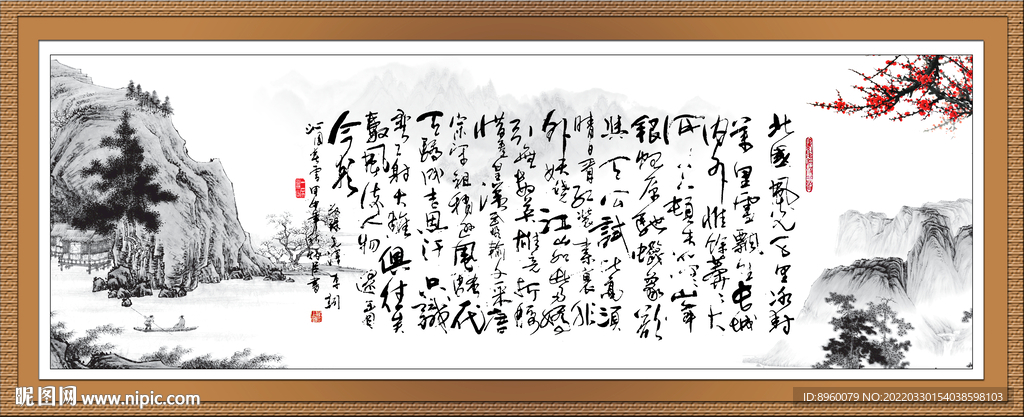 北國風光千里冰封
萬里雪飄望長城
内外惟餘莽莽大
河上下頓失滔滔山舞
銀蛇原馳蠟象欲
與天公試比高須
晴日看紅裝素裹分
外妖嬈江山如此多嬌
引無數英雄競折腰
惜秦皇漢武略輸文采唐
宗宋祖稍遜風騷一代
天驕成吉思汗只識
彎弓射大雕俱往矣
數風流人物還看
今朝
毛澤東詞
沁園春雪甲午年
昵图网 www.nipic.com
ID:8960079 NO:20220330154038598103